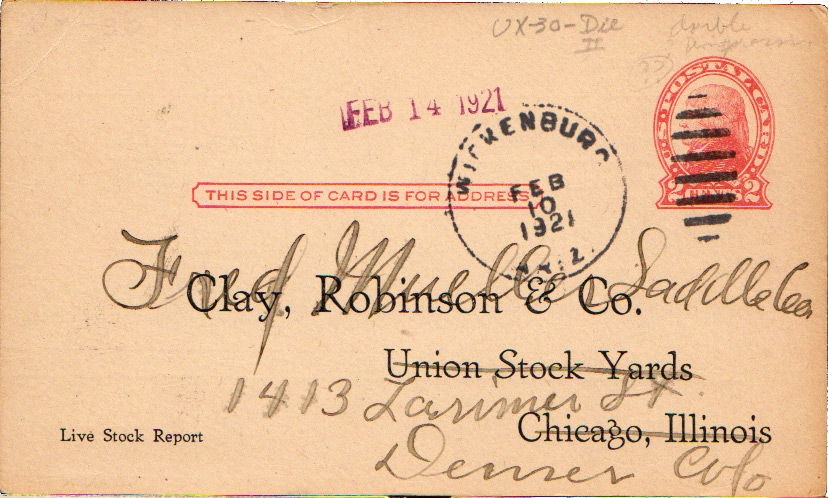 UX-30-Die
II
double
FEB 14 1921
WICKENBURG
FEB
10
1921
ARIZ.
U.S. POSTAL CARD
2 CENTS 2
THIS SIDE OF CARD IS FOR ADDRESS
Fred Mueller Saddle Co
Clay, Robinson & Co.
Union Stock Yards
1413 Larimer St.
Chicago, Illinois
Live Stock Report
Denver Colo